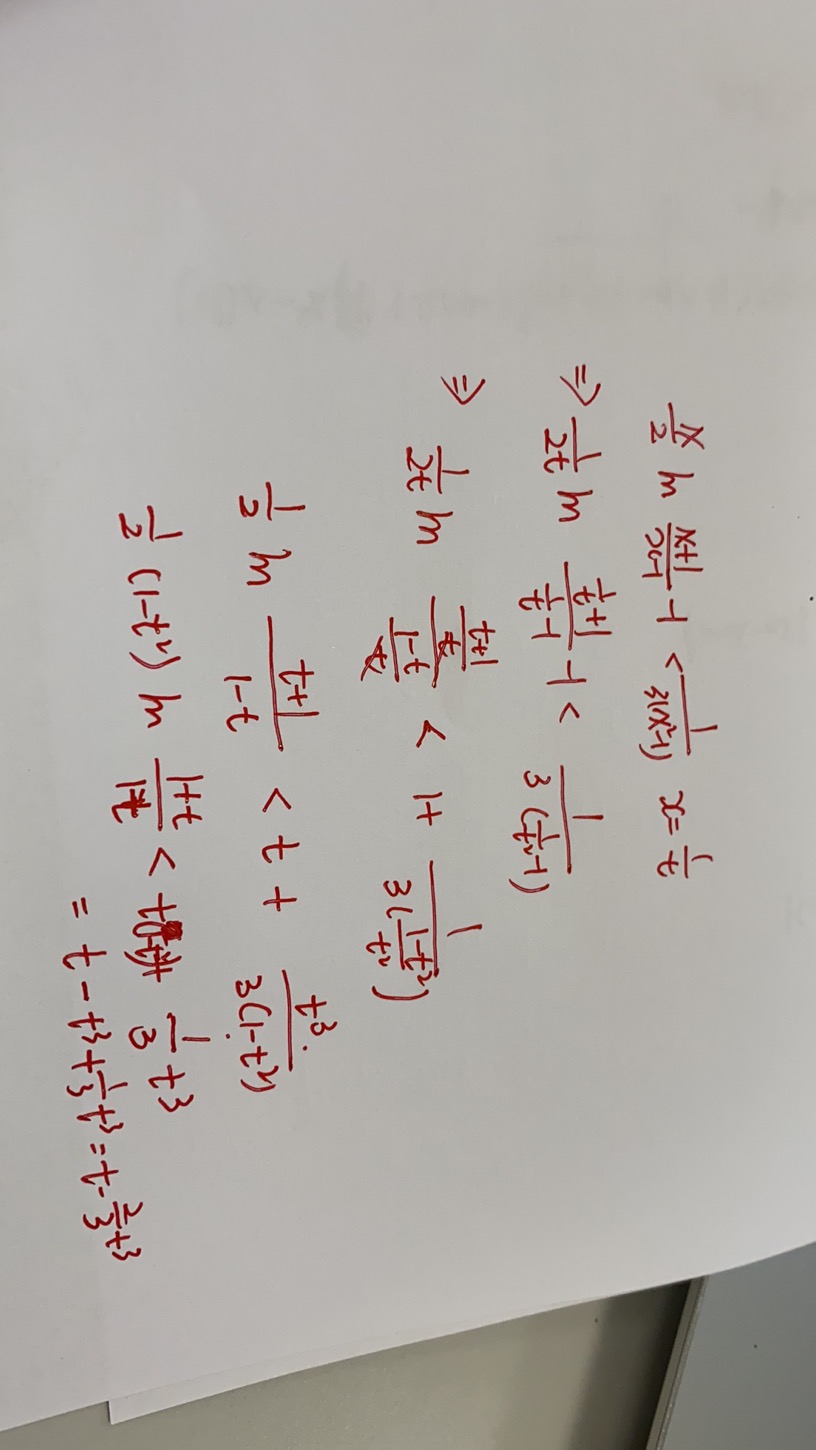 x/2 ln (x+1)/(x-1) - 1 < 1/(3(x²-1)) x = 1/t
⇒ 1/(2t) ln (1/t + 1)/(1/t - 1) - 1 < 1/(3(1/t² - 1))
⇒ 1/(2t) ln ((t+1)/t)/((1-t)/t) < 1 + 1/(3((1-t²)/t²))
1/2 ln (t+1)/(1-t) < t + t³/(3(1-t²))
1/2 (1-t²) ln (1+t)/(1-t) < t(1-t²) + 1/3 t³
= t - t³ + 1/3 t³ = t - 2/3 t³